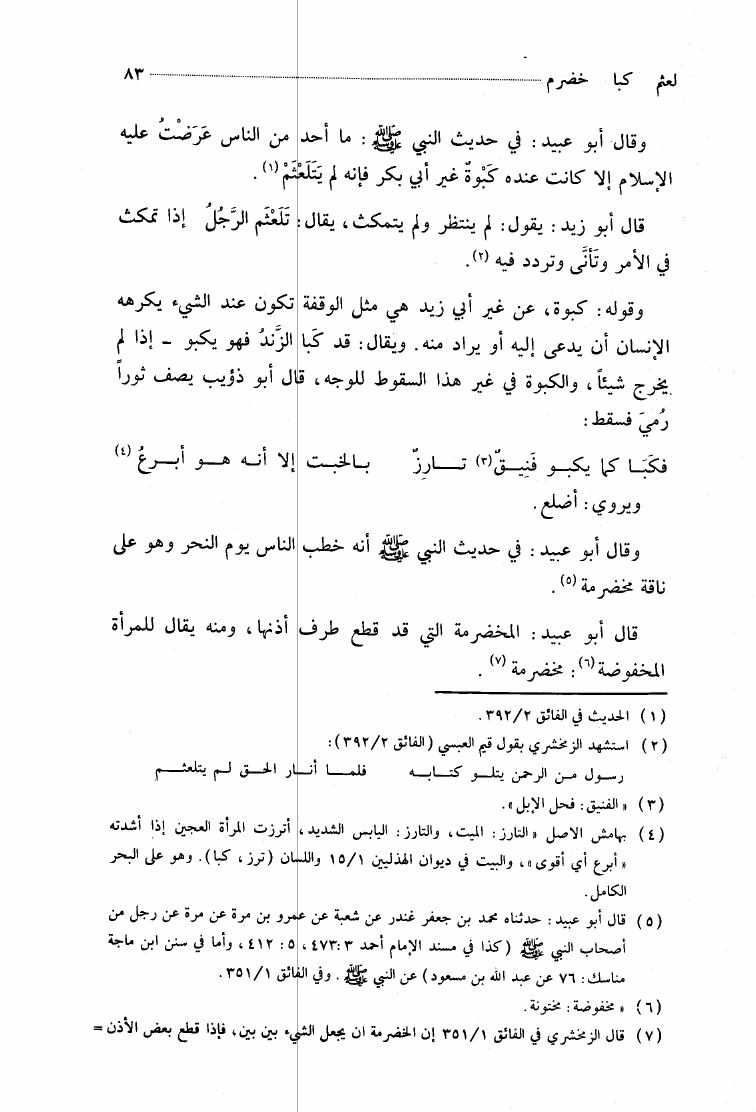 لعثم كبا خضرم ٨٣
وقال أبو عبيد: في حديث النبي ﷺ: ما أحد من الناس عَرَضْتُ عليه
الإسلام إلا كانت عنده كَبْوةٌ غير أبي بكر فإنه لم يَتَلَعْثَمْ(١).
قال أبو زيد: يقول: لم ينتظر ولم يتمكث، يقال: تَلَعْثَم الرَّجُلُ إذا تمكث
في الأمر وتَأَنَّى وتردد فيه(٢).
وقوله: كبوة، عن غير أبي زيد هي مثل الوقفة تكون عند الشيء يكرهه
الإنسان أن يدعى إليه أو يراد منه. ويقال: قد كَبا الزَّندُ فهو يكبو - إذا لم
يخرج شيئاً، والكبوة في غير هذا السقوط للوجه، قال أبو ذؤيب يصف ثوراً
رُميَ فسقط:
فكَبَـا كما يكبـو فَنِيـقٌ(٣) تـارِزٌ بـالخبـت إلا أنـه هـو أبـرعُ(٤)
ويروي: أضلع.
وقال أبو عبيد: في حديث النبي ﷺ أنه خطب الناس يوم النحر وهو على
ناقة مخضرمة(٥).
قال أبو عبيد: المخضرمة التي قد قطع طرف أذنها، ومنه يقال للمرأة
المخفوضة(٦): مخضرمة(٧).
(١) الحديث في الفائق ٣٩٢/٢.
(٢) استشهد الزمخشري بقول قيم العبسي (الفائق ٣٩٢/٢):
رسول مـن الرحمن يتلـو كتـابـه فلمـا أنـار الحـق لـم يتلعثـم
(٣) «الفنيق: فحل الإبل».
(٤) بهامش الاصل «التارز: الميت، والتارز: اليابس الشديد، أترزت المرأة العجين إذا أشدته
«أبرع أي أقوى»، والبيت في ديوان الهذليين ١٥/١ واللسان (ترز، كبا). وهو على البحر
الكامل.
(٥) قال أبو عبيد: حدثناه محمد بن جعفر غندر عن شعبة عن عمرو بن مرة عن مرة عن رجل من
أصحاب النبي ﷺ (كذا في مسند الإمام أحمد ٤٧٣:٣، ٥: ٤١٢، وأما في سنن ابن ماجة
مناسك: ٧٦ عن عبد الله بن مسعود) عن النبي ﷺ. وفي الفائق ٣٥١/١.
(٦) «مخفوضة: مختونة.
(٧) قال الزمخشري في الفائق ٣٥١/١ إن الخضرمة ان يجعل الشيء بين بين، فإذا قطع بعض الأذن =